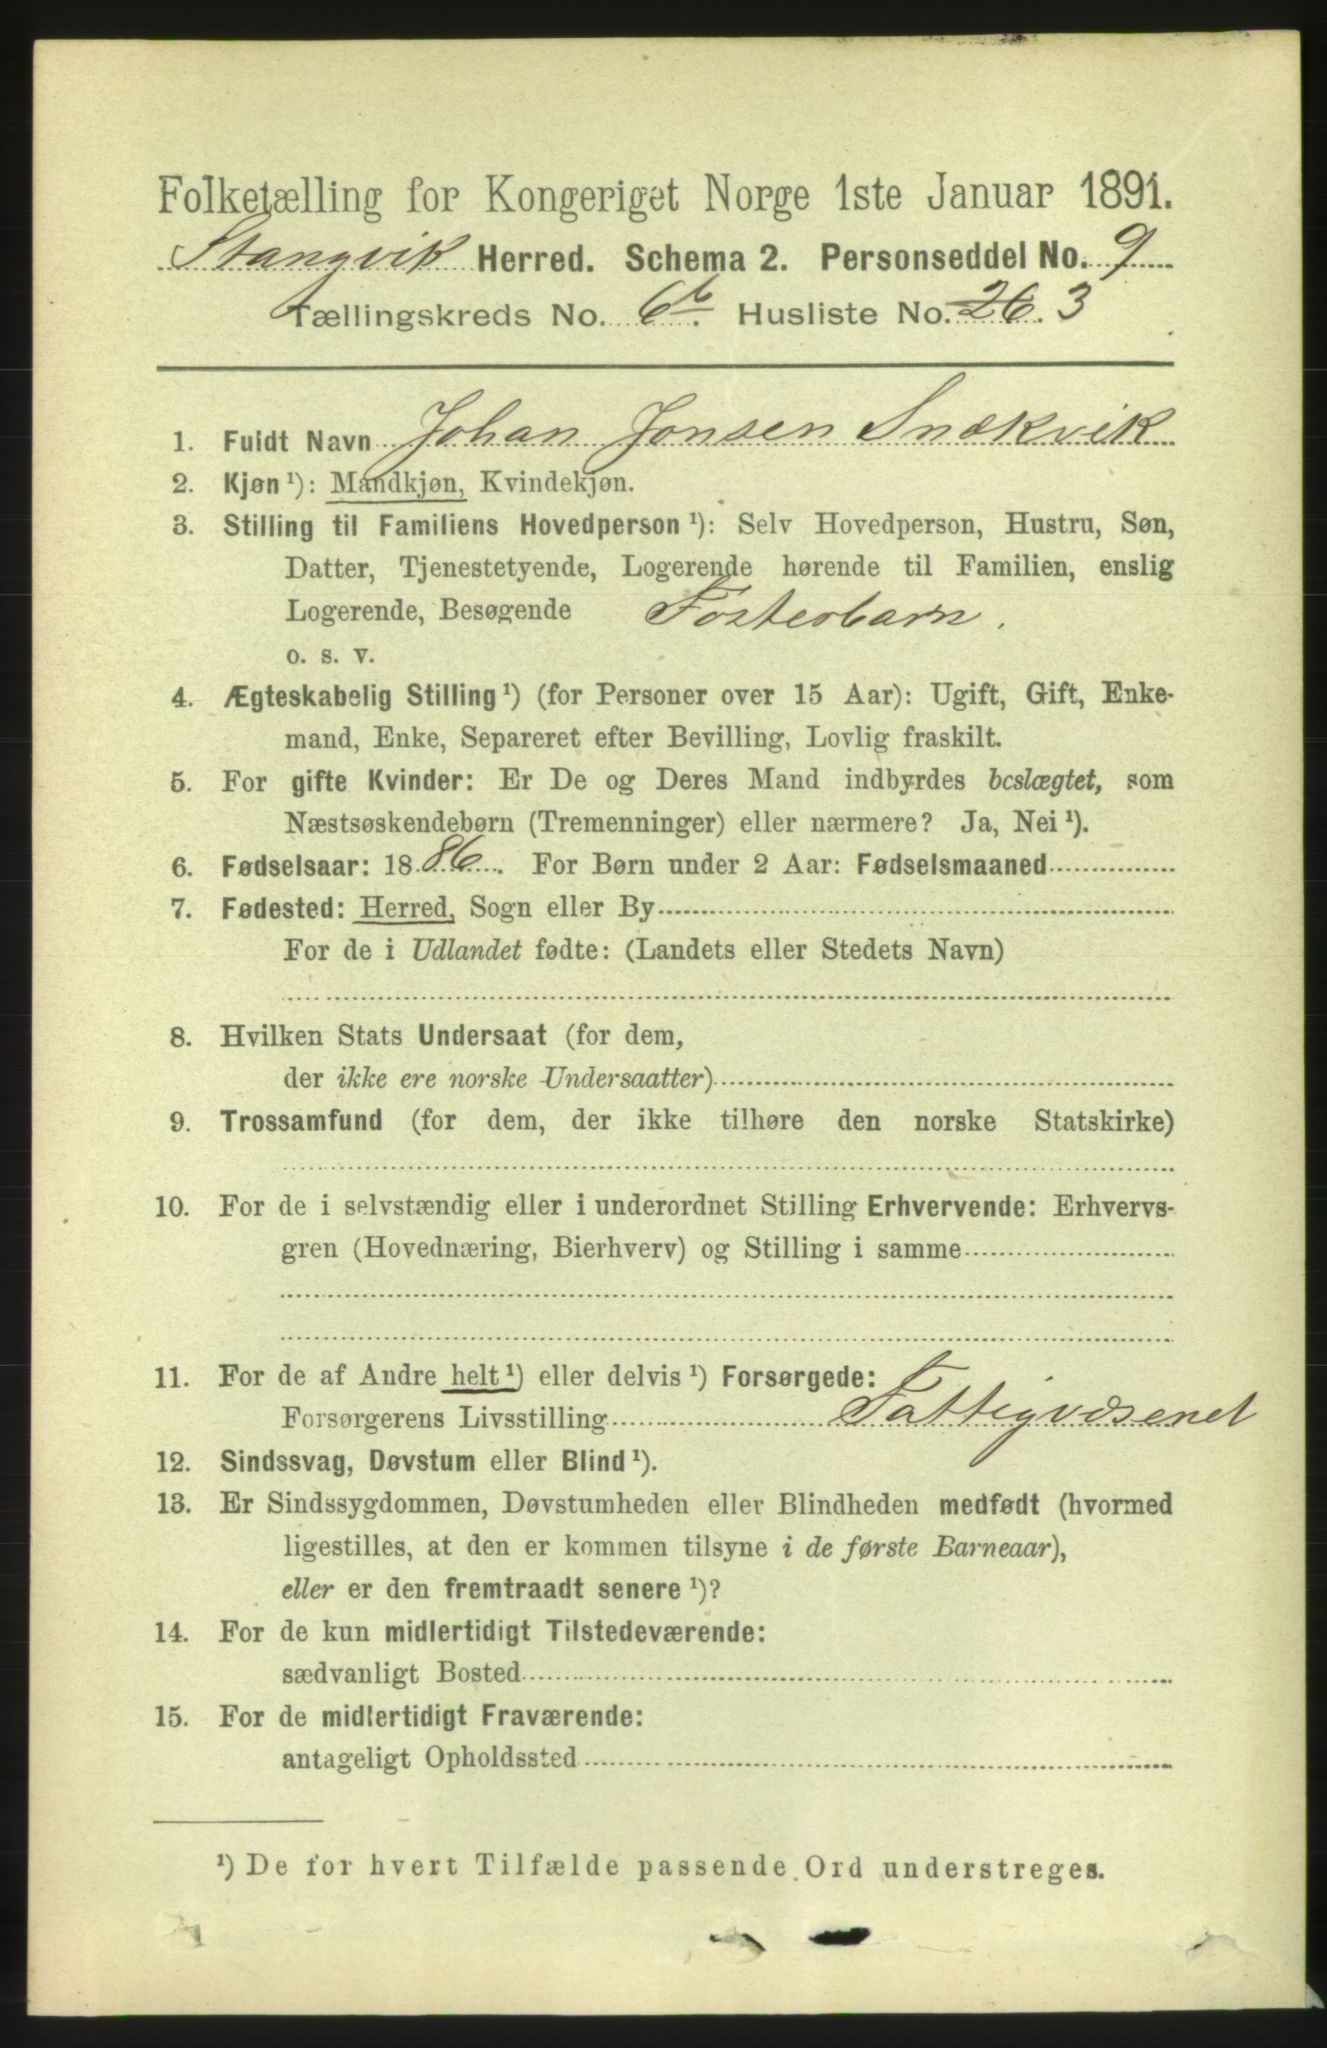 Folketælling for Kongeriget Norge 1ste Januar 1891.
Stangvik Herred. Schema 2. Personseddel No. 9
Tællingskreds No. 6b. Husliste No. 26. 3
1. Fuldt Navn Johan Jonsen Snekvik
2. Kjøn ¹): Mandkjøn, Kvindekjøn.
3. Stilling til Familiens Hovedperson ¹): Selv Hovedperson, Hustru, Søn,
Datter, Tjenestetyende, Logerende hørende til Familien, enslig
Logerende, Besøgende Fosterbarn.
o. s. v.
4. Ægteskabelig Stilling ¹) (for Personer over 15 Aar): Ugift, Gift, Enke-
mand, Enke, Separeret efter Bevilling, Lovlig fraskilt.
5. For gifte Kvinder: Er De og Deres Mand indbyrdes bcslægtet, som
Næstsøskendebørn (Tremenninger) eller nærmere? Ja, Nei ¹).
6. Fødselsaar: 1886. For Børn under 2 Aar: Fødselsmaaned
7. Fødested: Herred, Sogn eller By
For de i Udlandet fødte: (Landets eller Stedets Navn)
8. Hvilken Stats Undersaat (for dem,
der ikke ere norske Undersaatter)
9. Trossamfund (for dem, der ikke tilhøre den norske Statskirke)
10. For de i selvstændig eller i underordnet Stilling Erhvervende: Erhvervs-
gren (Hovednæring, Bierhverv) og Stilling i samme
11. For de af Andre helt ¹) eller delvis ¹) Forsørgede:
Forsørgerens Livsstilling Fattigvæsenet
12. Sindssvag, Døvstum eller Blind ¹).
13. Er Sindssygdommen, Døvstumheden eller Blindheden medfødt (hvormed
ligestilles, at den er kommen tilsyne i de første Barneaar),
eller er den fremtraadt senere ¹)?
14. For de kun midlertidigt Tilstedeværende:
sædvanligt Bosted
15. For de midlertidigt Fraværende:
antageligt Opholdssted
¹) De for hvert Tilfælde passende Ord understreges.